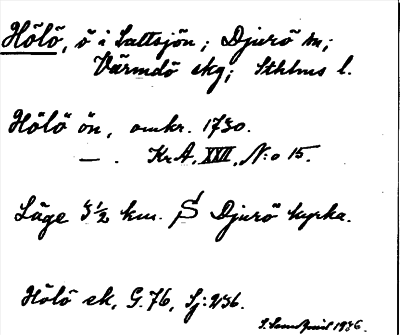 Hölö, ö i Saltsjön; Djurö sn;
Värmdö skg; Sthlms l.
Hölö ön, omkr. 1730.
— . Kr.A. XXII, N:o 15.
Läge 3 1/2 km. S Djurö kyrka.
Hölö sk, G. 76, Sj: 236.
1936.